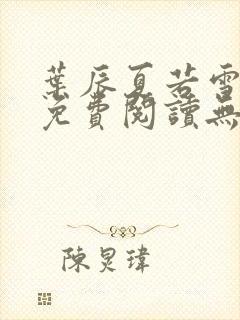 葉辰夏若雪
免費閱讀無
陳炅瑋